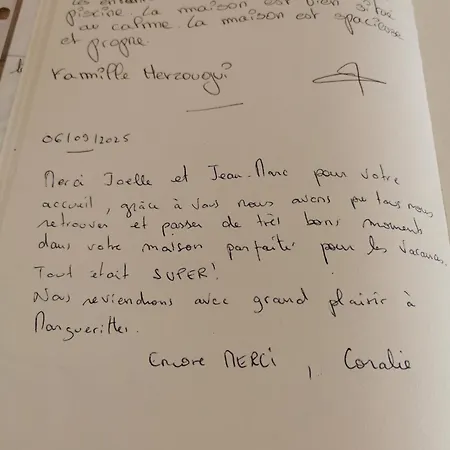 piscine. La maison est bien situé
au calme. La maison est spacieuse
et propre.
Famille Herzougui
06/09/2025
Merci Joelle et Jean-Marc pour votre
accueil, grâce à vous nous avons pu tous nous
retrouver et passer de très bons moments
dans votre maison parfaite pour les vacances.
Tout était SUPER!
Nous reviendrons avec grand plaisir à
Marguerittes.
Encore MERCI, Coralie